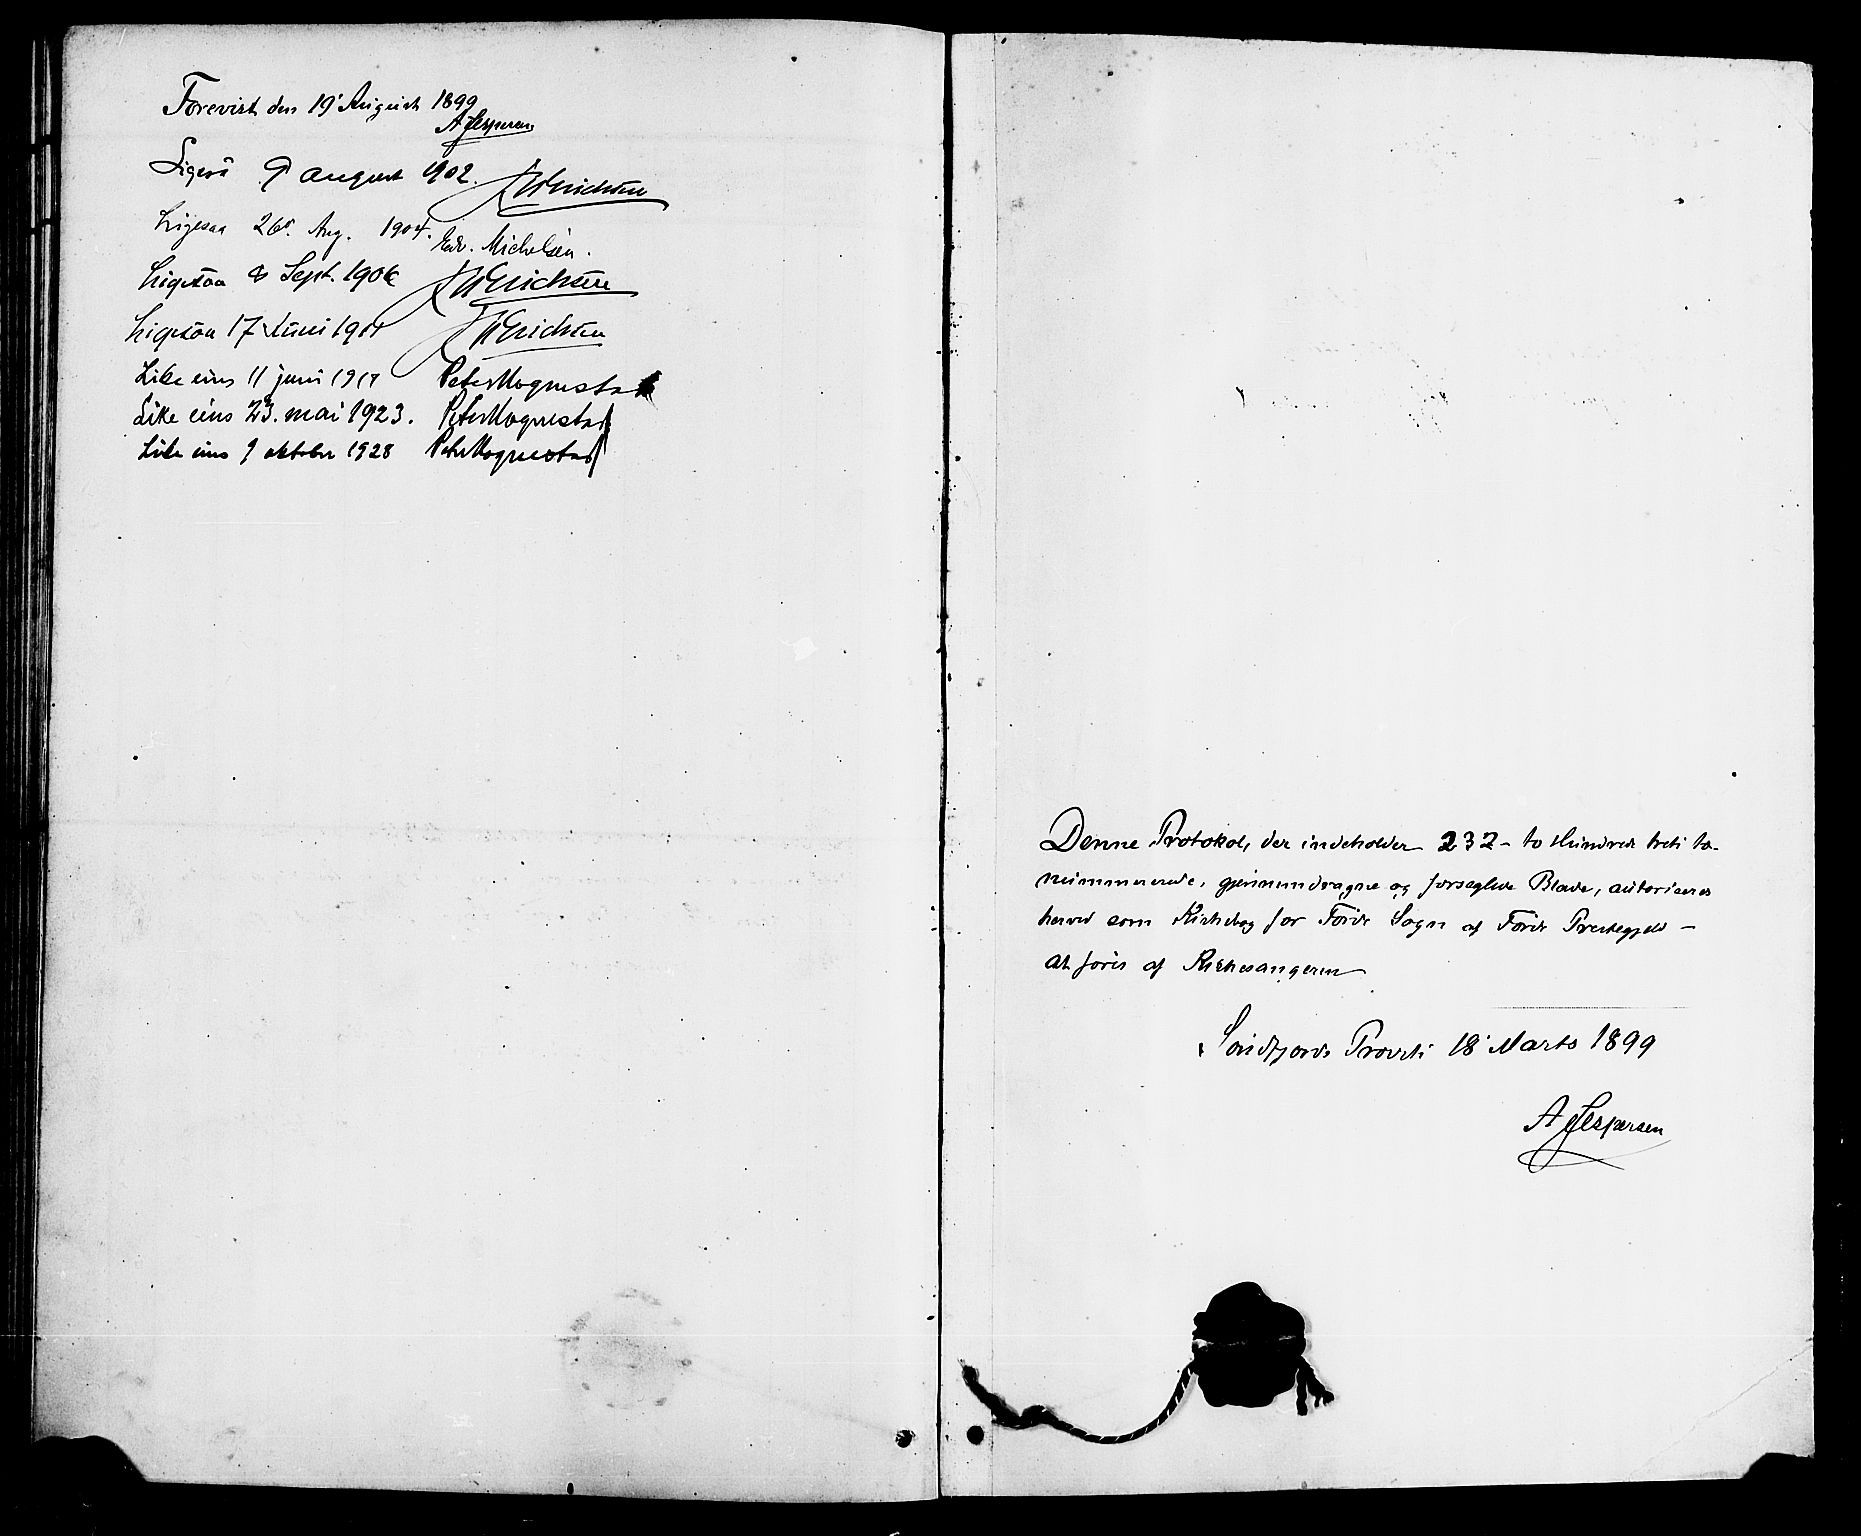 Forevist den 19' August 1899
A Jespersen
Ligeså 9 august 1902. J W Erichsen
Ligesaa 26de. Aug. 1904. Edv. Michelsen.
Ligesaa 8 Sept. 1906 J W Erichsen
Ligesaa 17 Juni 1911 J W Erichsen
Like eins 11 juni 1917 Peter Mognestad
Like eins 23. mai 1923. Peter Mognestad
Like eins 9 oktober 1928 Peter Mognestad
Denne Protokol, der indeholder 232 - to Hundrede treti to -
nummererede, gjennemdragne og forseglede Blade, autoriseres
herved som Kirkebog for Førde Sogn af Førde Prestegjeld -
at føres af Kirkesangeren
Søndfjords Provsti 18' Marts 1899
A Jespersen